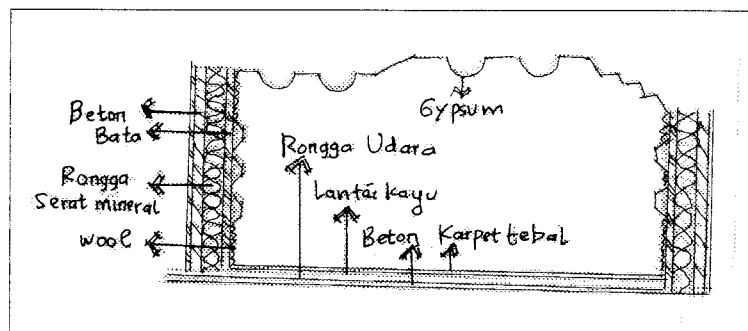 Beton
Bata
Rongga
Serat mineral
Wool
Gypsum
Rongga Udara
Lantai kayu
Beton
Karpet tebal